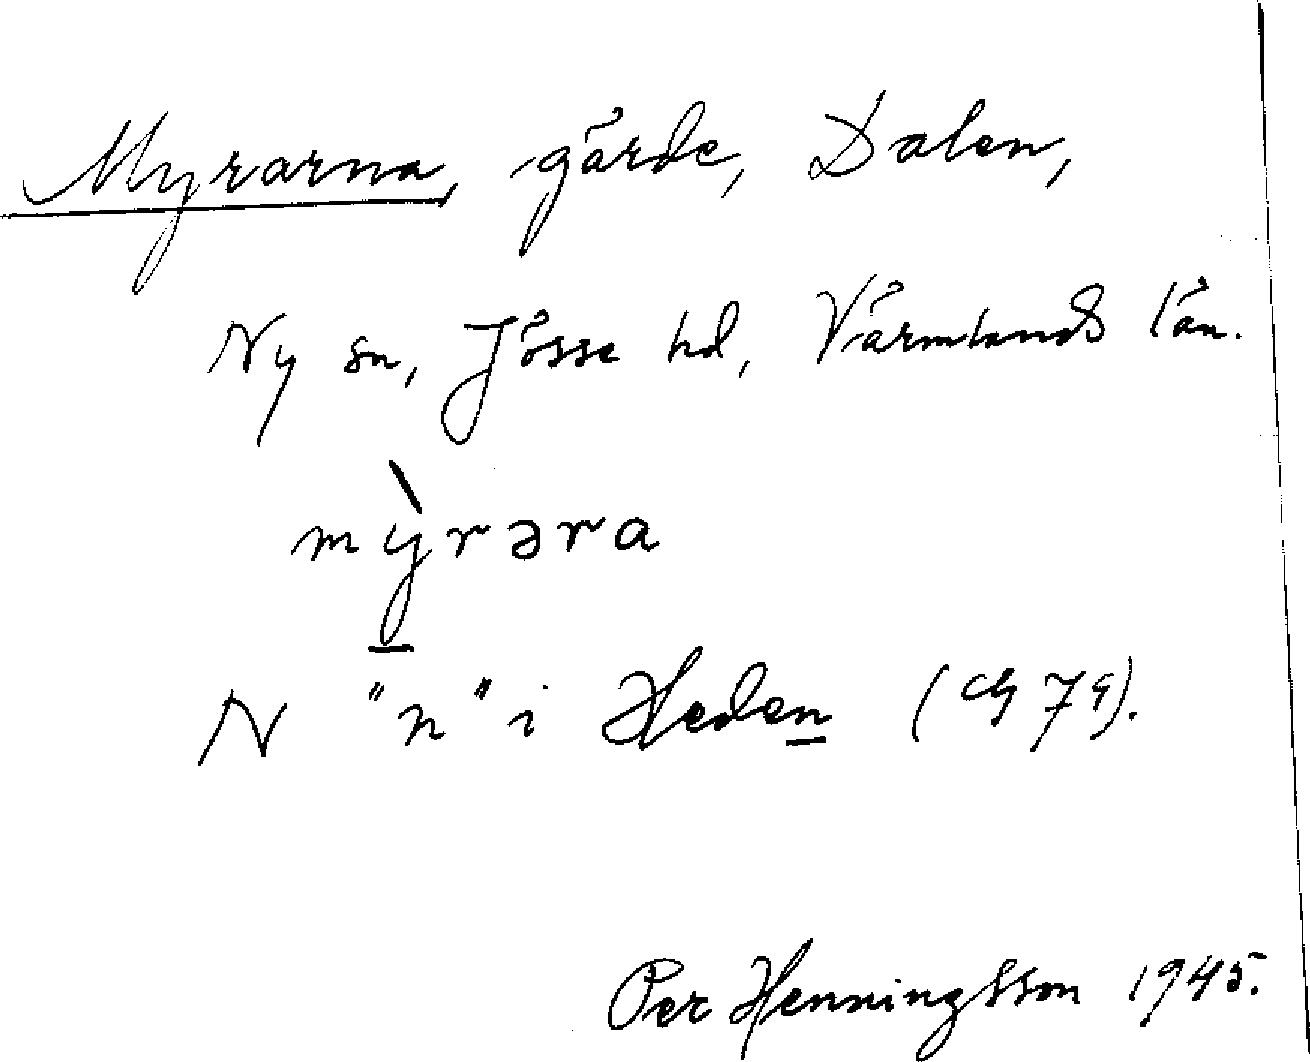 Myrarna, gärde, Dalen,
Ny sn, Jösse hd, Värmlands län.
mỳrəra
N "n" i Heden (
Per Henningsson 1945.